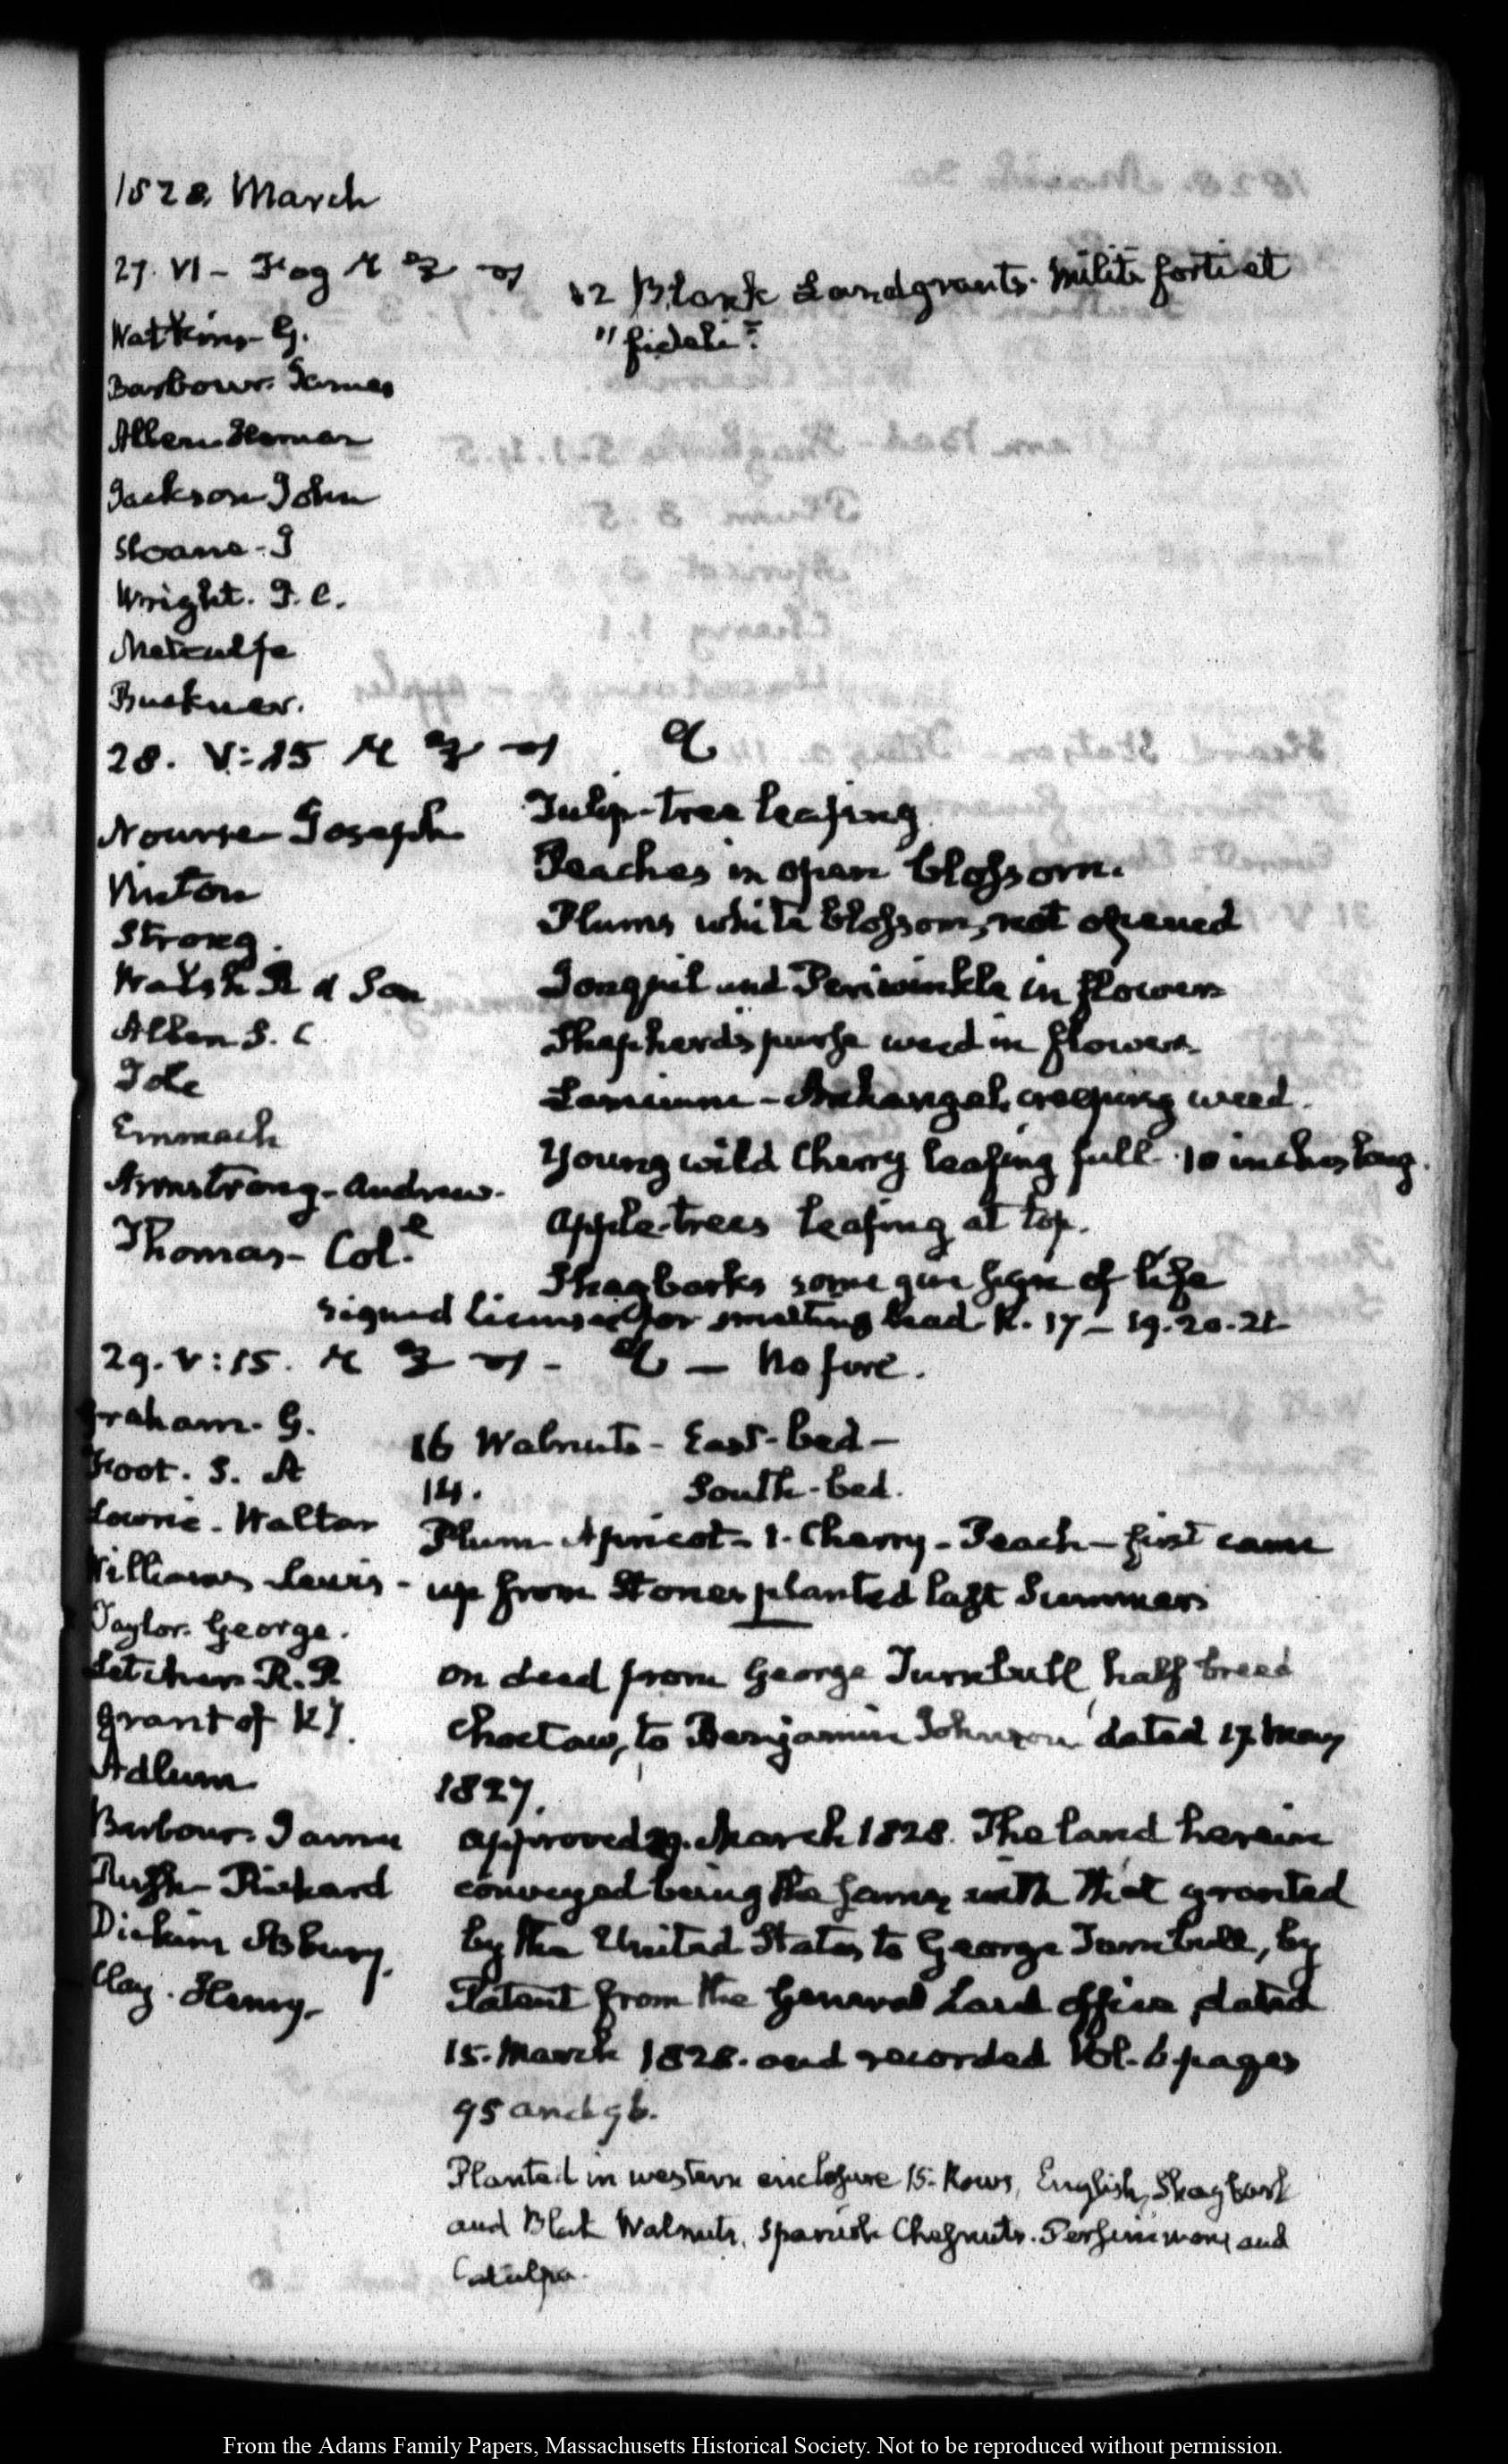 1828. March
27. VI - Fog
12 Blank Landgrants. Militi forti et
"fideli"
Watkins - G.
Barbour. James
Allen Heman
Jackson John
Sloane - J
Wright. J. C.
Metcalfe
Buckner.
28. V:15
Nourse - Joseph
Vinton
Strong.
Walsh R & Son
Allen S. C.
Ide
Emmach
Armstrong - Andrew.
Thomas - Col.e
Tulip-tree leafing
Peaches in open blossom.
Plums white blossom, not opened
Jonquil and Periwinkle in flower
Shepherds purse weed in flower.
Lamium - Archangel, creeping weed.
Young wild Cherry leafing full. 10 inches long.
Apple-trees leafing at top.
Shagbarks some give sign of life
signed licenses for smelting lead R. 17 - 19. 20. 21
29. V:15. - No fire.
Graham. G.
Foot. S. A
Lowrie. Walter
Williams Lewis -
Taylor. George.
Letcher R. P.
Grant of KY.
Adlum
Barbour. James
Rush - Richard
Dickins Asbury.
Clay. Henry.
16 Walnuts - East-bed -
14. South-bed.
Plum - Apricot - 1. Cherry - Peach - first came
up from Stones planted last Summer
on deed from George Turnbull, half breed
Choctaw, to Benjamin Johnson dated 17 May
1827.
approved 29. March 1828. The land herein
conveyed being the same with that granted
by the United States to George Turnbull, by
Patent from the General Land Office, dated
15. March 1828. and recorded Vol. 6 pages
95 and 96.
Planted in western enclosure 15. Rows, English, Shagbark
and Black Walnuts, Spanish Chesnuts. Persimmons and
Catalpa.
From the Adams Family Papers, Massachusetts Historical Society. Not to be reproduced without permission.